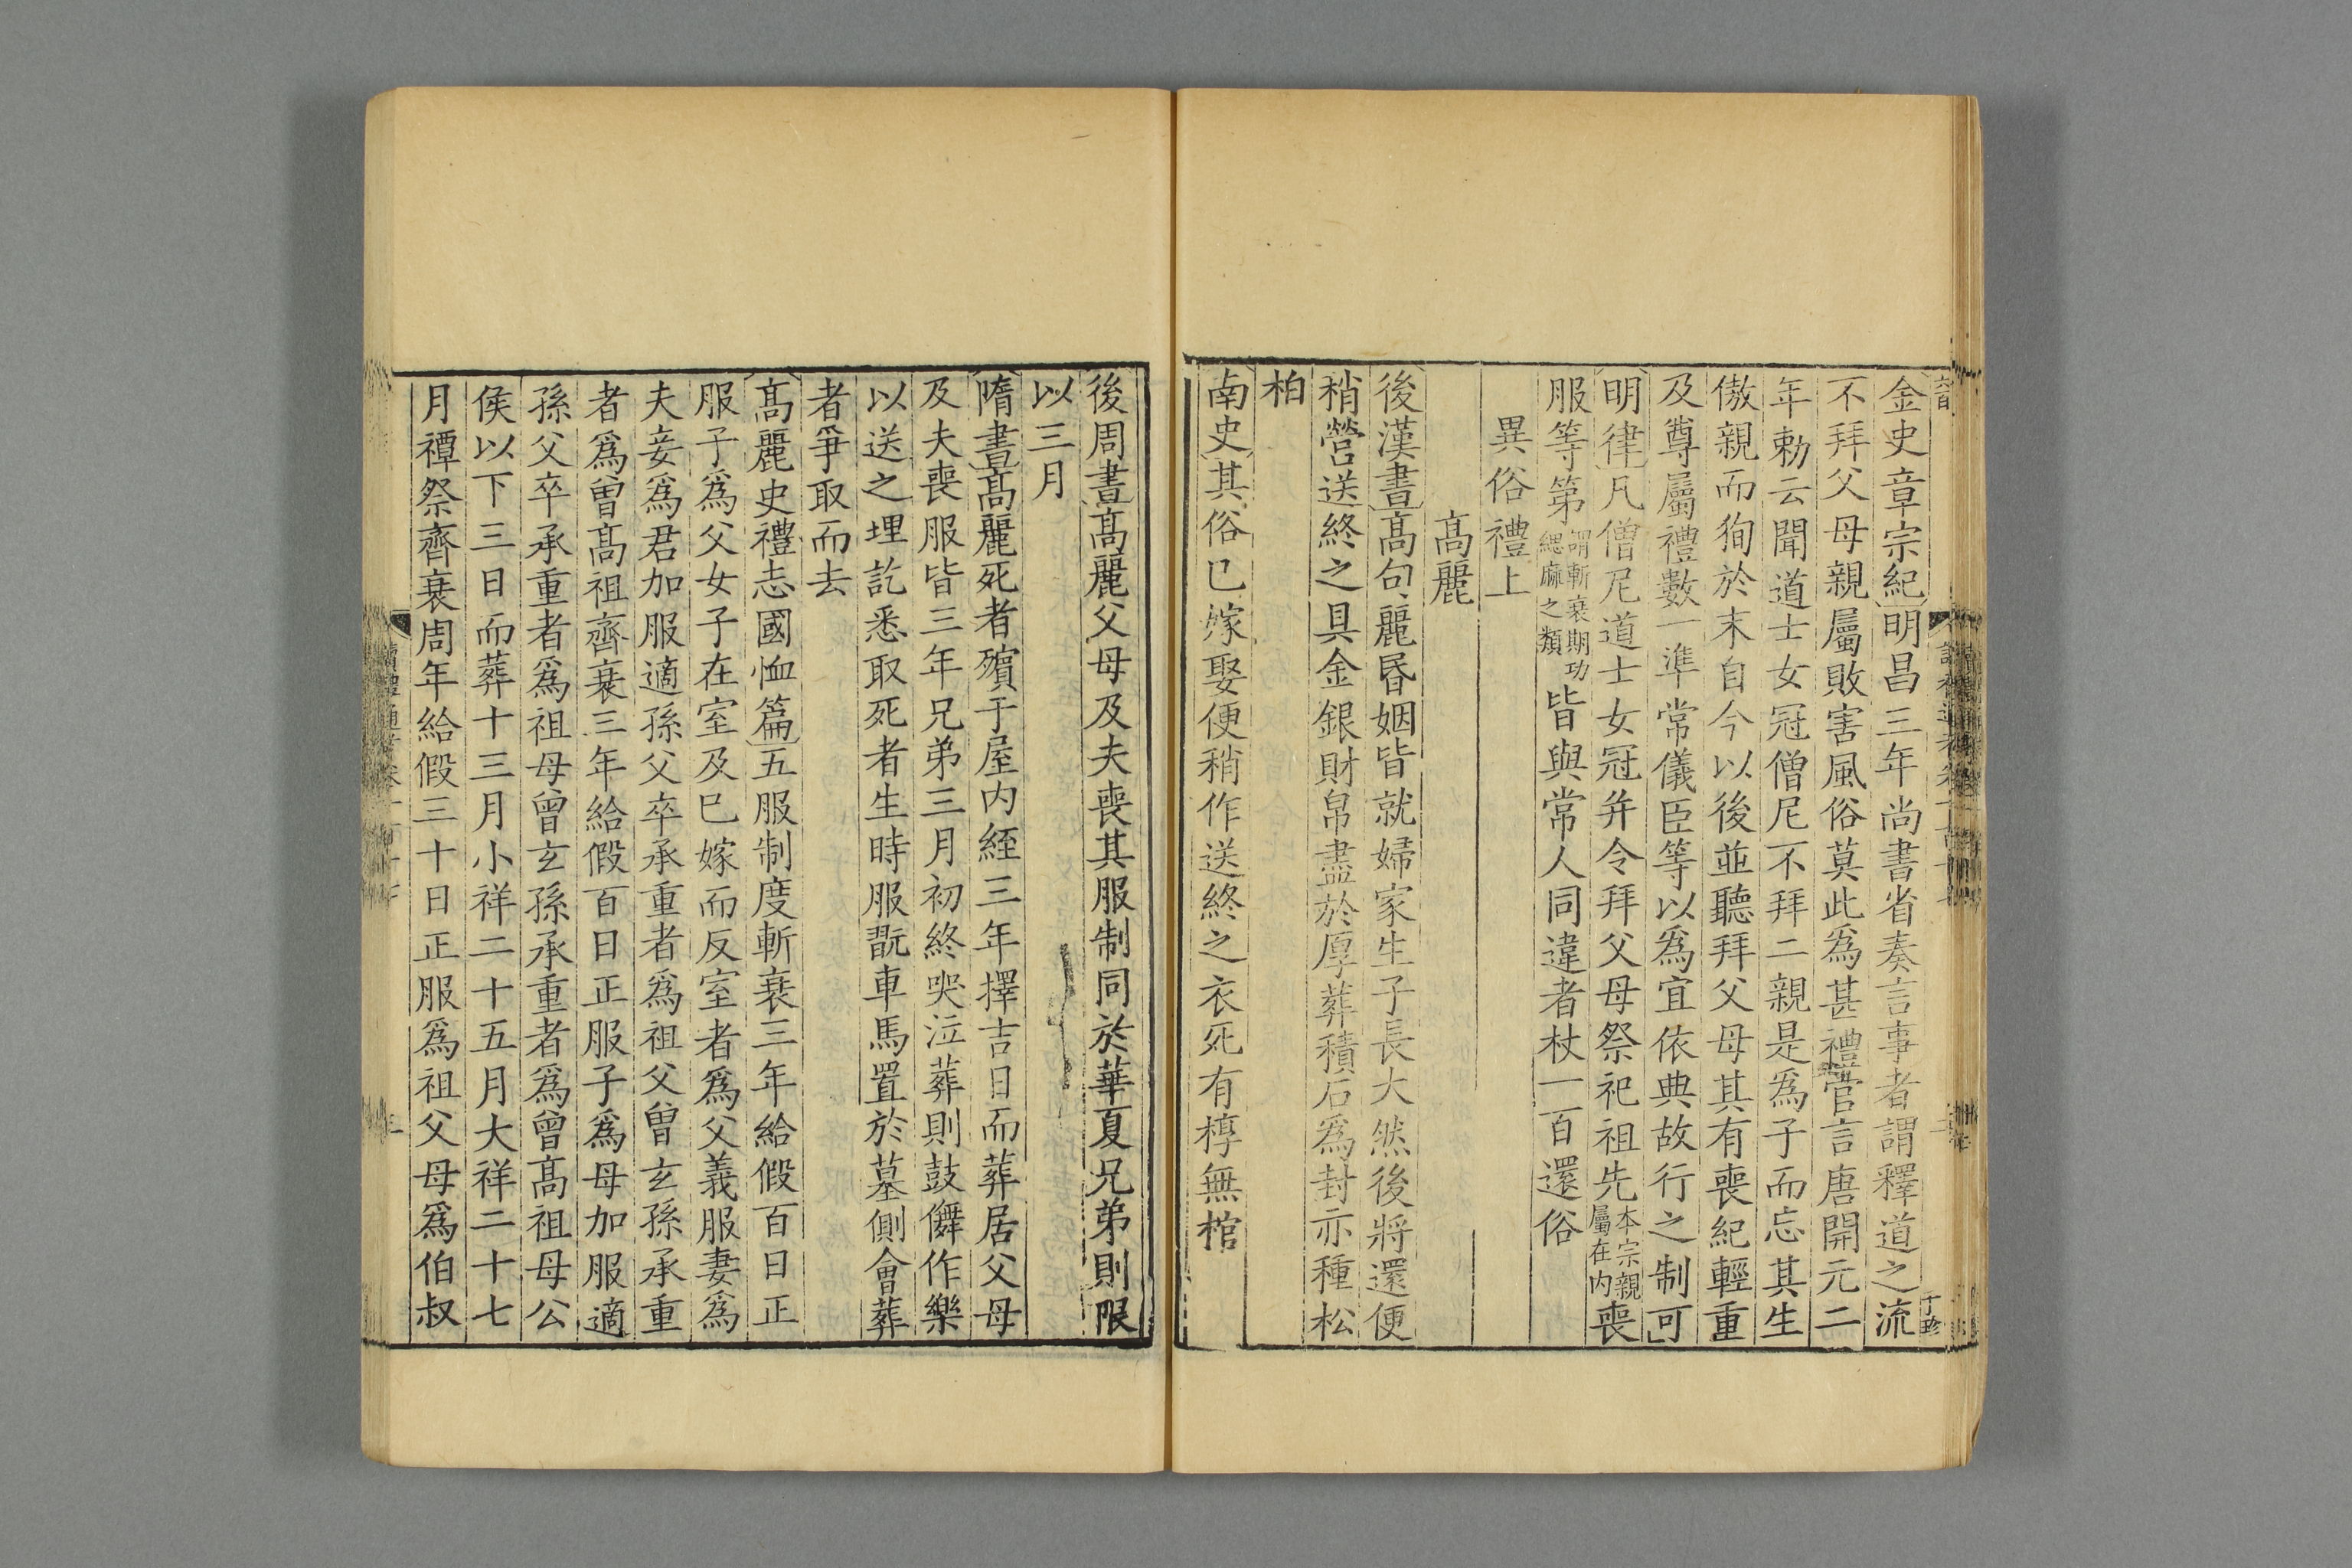 金史章宗紀明昌三年尚書省奏言事者謂釋道之流
不拜父母親屬敗害風俗莫此爲甚禮官言唐開元二
年勅云聞道士女冠僧尼不拜二親是爲子而忘其生
傲親而狥於末自今以後並聽拜父母其有喪紀輕重
及尊屬禮數一準常儀臣等以爲宜依典故行之制可
明律凡僧尼道士女冠并令拜父母祭祀祖先本宗親屬在内喪
服等第謂斬衰期功緦麻之類皆與常人同違者杖一百還俗
異俗禮上
高麗
後漢書高句麗昏姻皆就婦家生子長大然後將還便
稍營送終之具金銀財帛盡於厚葬積石爲封亦種松
柏
南史其俗已嫁娶便稍作送終之衣死有槨無棺
後周書高麗父母及夫喪其服制同於華夏兄弟則限
以三月
隋書高麗死者殯于屋内經三年擇吉日而葬居父母
及夫喪服皆三年兄弟三月初終哭泣葬則鼓儛作樂
以送之埋訖悉取死者生時服翫車馬置於墓側會葬
者爭取而去
高麗史禮志國恤篇五服制度斬衰三年給假百日正
服子爲父女子在室及已嫁而反室者爲父義服妻爲
夫妾爲君加服適孫父卒承重者爲祖父曾玄孫承重
者爲曾高祖齊衰三年給假百日正服子爲母加服適
孫父卒承重者爲祖母曾玄孫承重者爲曾高祖母公
侯以下三日而葬十三月小祥二十五月大祥二十七
月禫祭齊衰周年給假三十日正服爲祖父母爲伯叔